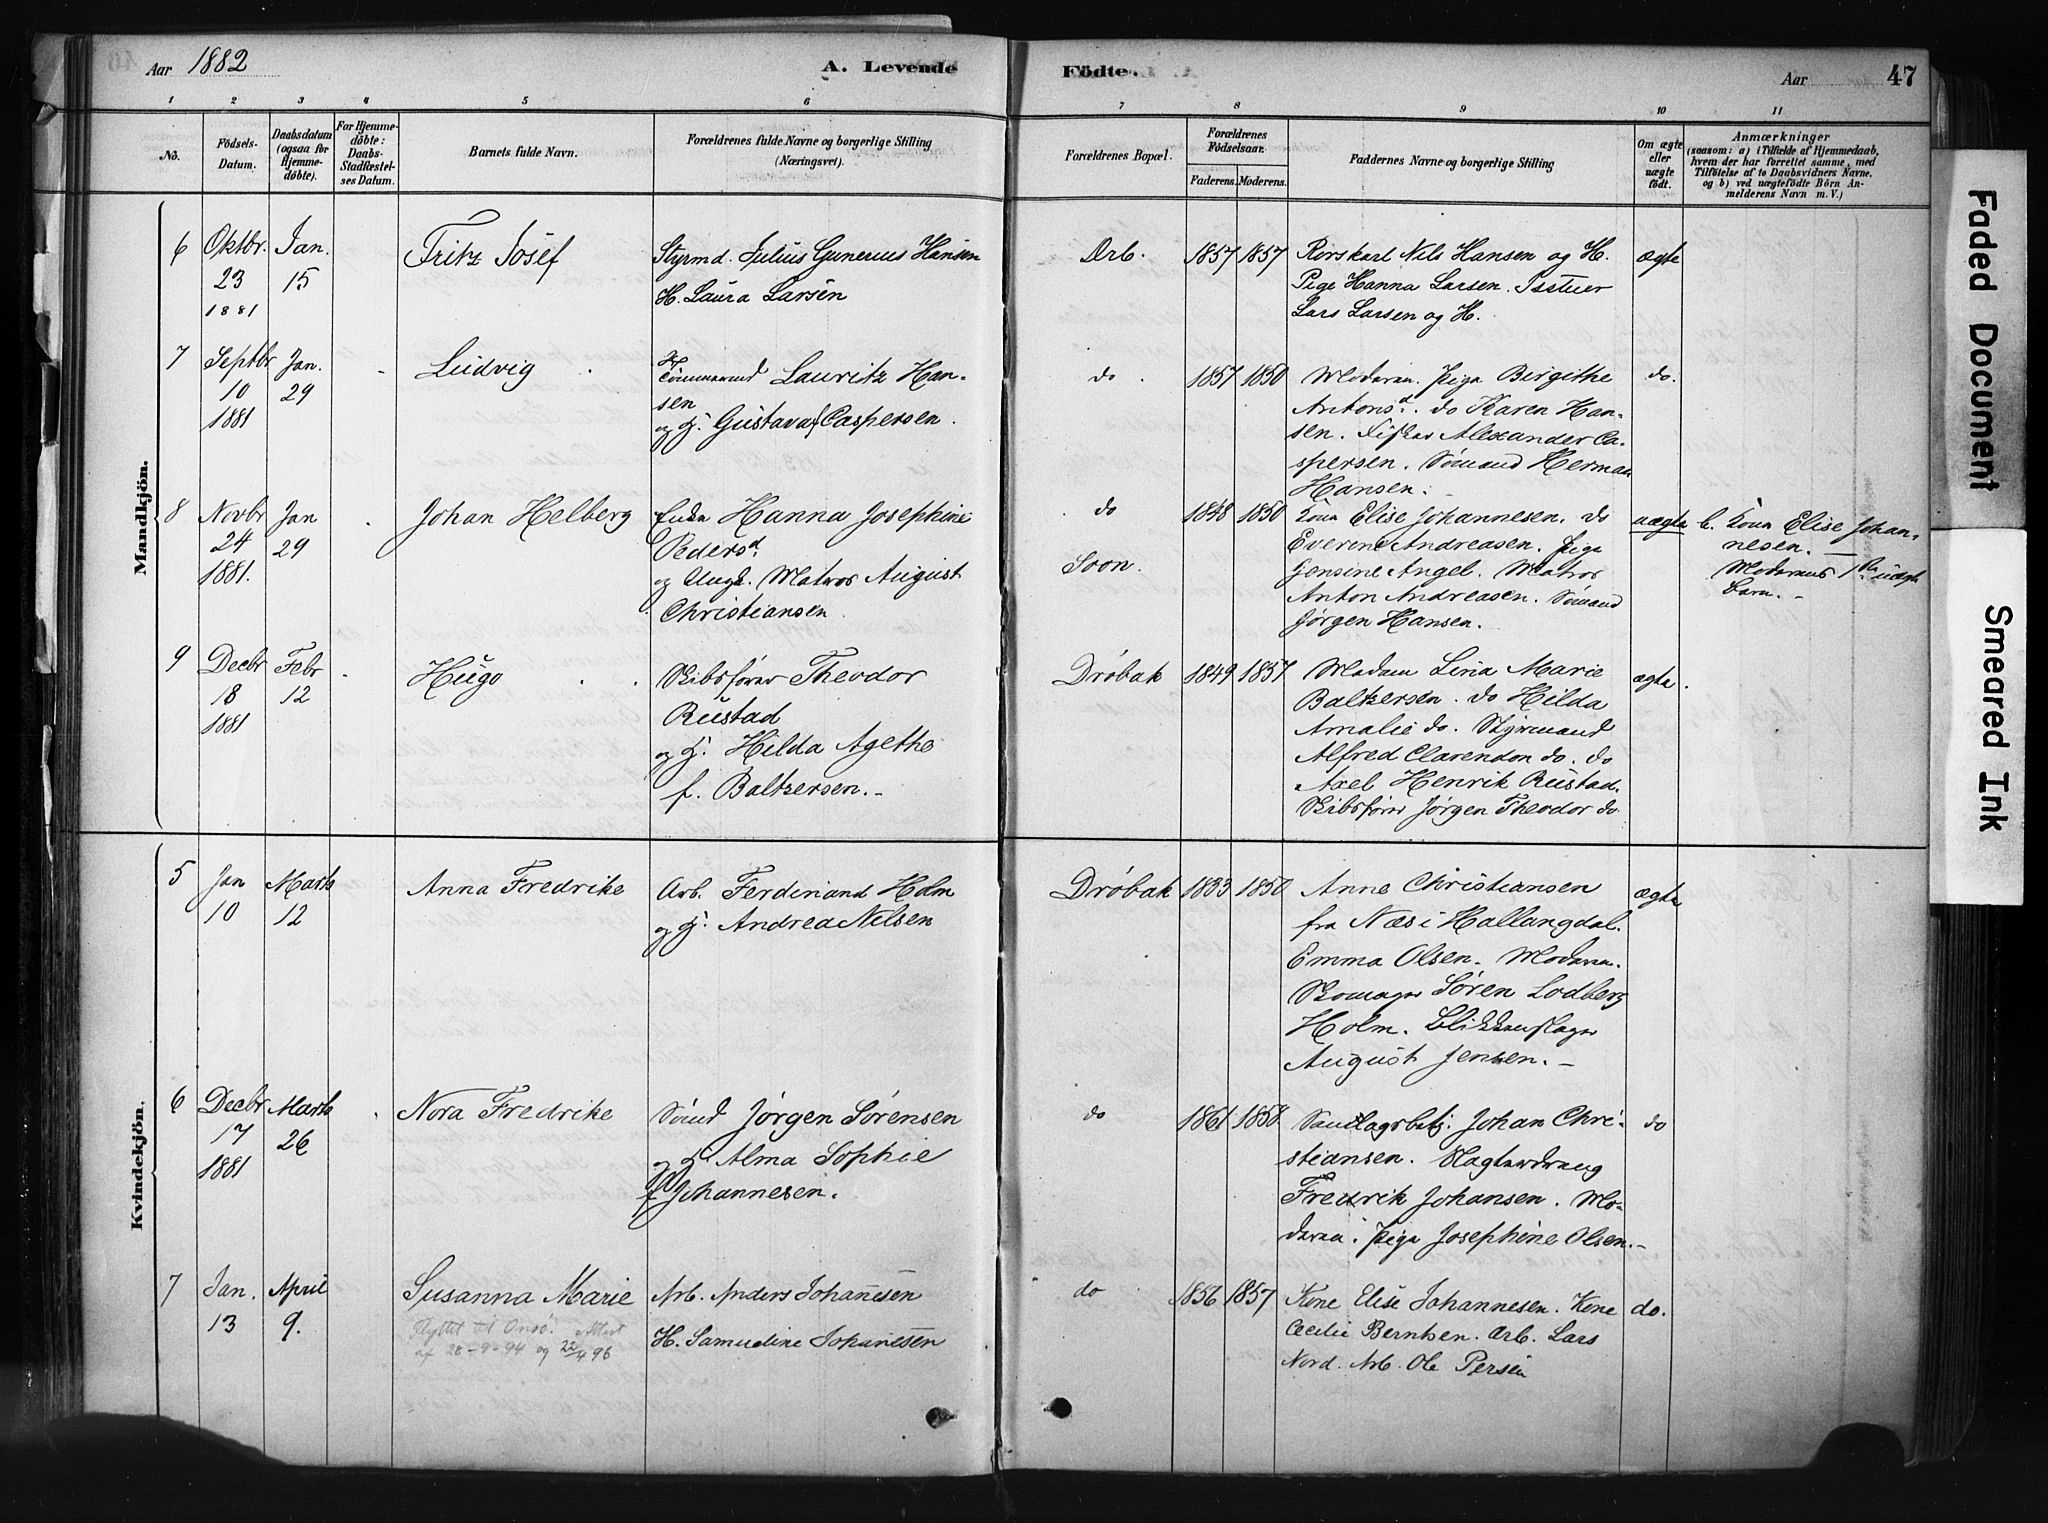 Aar 1882
A. Levende
Födte.
Aar
47
1 2 3 4 5 6 7 8 9 10 11
No.
Födsels-
Datum.
Daabsdatum
(ogsaa for
Hjemme-
döbte).
For Hjemme-
döbte:
Daabs-
Stadfæstel-
ses Datum.
Barnets fulde Navn.
Forældrenes fulde Navne og borgerlige Stilling
(Næringsvei).
Forældrenes Bopæl.
Forældrenes
Födselsaar.
Faderens. Moderens.
Faddernes Navne og borgerlige Stilling
Om ægte
eller
uægte
födt.
Anmærkninger
(saasom: a) i Tilfælde af Hjemmedaab,
hvem der har forrettet samme, med
Tilföielse af to Daabsvidners Navne,
og b) ved uægtefödte Börn An-
melderens Navn m. V.)
Mandkjön.
6 Oktbr. 23 1881
Jan. 15
Fritz Josef
Styrmd. Julius Gunerius Hansen
H. Laura Larsen
Drb.
1857 1857
Rorskarl Nils Hansen og H.
Pige Hanna Larsen.
Lars Larsen og H.
ægte
7 Septbr 10 1881
Jan. 29
Ludvig
Tömmermd Lauritz Han-
sen
og H. Gustava f. Caspersen.
do
1857 1850
Moderen. Pige Birgithe
Antonsd. do Karen Han-
sen. Fisker Alexander Ca-
spersen. Sömand Herman
Hansen.
do.
8 Novbr 24 1881.
Jan 29
Johan Helberg
Enke Hanna Josephine
Pedersd.
og Ungk. Matros August
Christiansen.
do
Soon.
1848 1850
Kone Elise Johannesen. do
Everene Andreasen. Pige
Jensine Angel. Matros
Anton Andreasen. Sömand
Jørgen Hansen.
uægte
b. Kone Elise Johan-
nesen. —
Moderens 1ste uægte
Barn. -
9 Decbr 18 1881
Febr 12
Hugo
Skibsfører Theodor
Rustad
og H. Hilda Agethe
f. Baltzersen. -
Drøbak
1849 1857
Madam Lina Marie
Baltzersen. do Hilda
Amalie do. Styrmand
Alfred Clarendon do. do
Axel Henrik Rustad.
Skibsfører Jørgen Theodor do
ægte.
Kvindekjön.
5 Jan 10
Marts 12
Anna Fredrike
Arb. Ferdinand Holm
og H. Andrea Nilsen
Drøbak
1833 1850
Anne Christiansen
fra Næs i Hallangdal.
Emma Olsen. Moderen.
Skomager Søren Lodberg
Holm. Blikkenslager
August Jensen. -
ægte
6 Decbr 17 1881
Marts 26
Nora Fredrike
Sömd Jørgen Sørensen
og H. Alma Sophie
f. Johannesen.
do
1861 1858
Johan Chri-
stiansen. Slagterdreng
Fredrik Johansen. Mo-
deren. Pige Josephine Olsen. -
do
7 Jan. 13
April 9.
Susanna Marie
Flyttet til Onsö. Attest
af 28-9-94 og 22/4 96
Arb. Anders Johannesen
H. Samudine Johannesen
do
1856 1857
Kone Elise Johannesen. Kone
Cecilie Berntsen. Arb. Lars
Nord. Arb. Ole Persen
do.
Faded Document
Smeared Ink